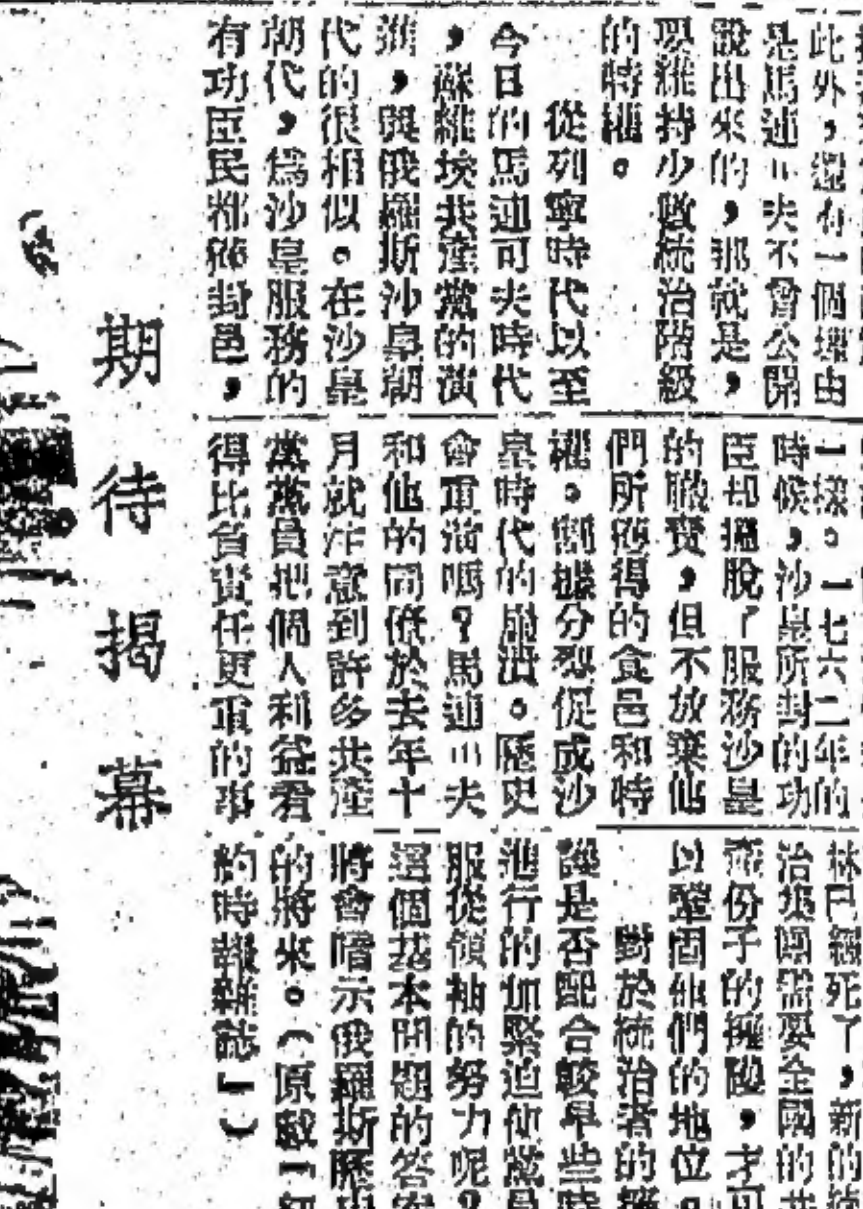 此外，還有一個理由
是馬連可夫不會公開
說出來的，那就是，
要維持少數統治階級
的特權。
從列寧時代以至
今日的馬連可夫時代
，蘇維埃共產黨的演
進，與俄羅斯沙皇朝
代的很相似。在沙皇
朝代，爲沙皇服務的
有功臣民都獲封邑，
一樣。一七六二年的
時候，沙皇所封的功
臣却擺脫了服務沙皇
的職責，但不放棄他
們所獲得的食邑和特
權。割據分裂促成沙
皇時代的崩潰。歷史
會重演嗎？馬連可夫
和他的同僚於去年十
月就注意到許多共產
黨黨員把個人利益看
得比負責任更重的事
林已經死了，新的統
治集團需要全國的共
產份子的擁護，才可
以鞏固他們的地位。
對於統治者的擁
護是否配合較早些時
進行的加緊迫使黨員
服從領袖的努力呢？
這個基本問題的答案
將會暗示俄羅斯歷史
的將來。（原載「紐
約時報雜誌」）
期待揭幕